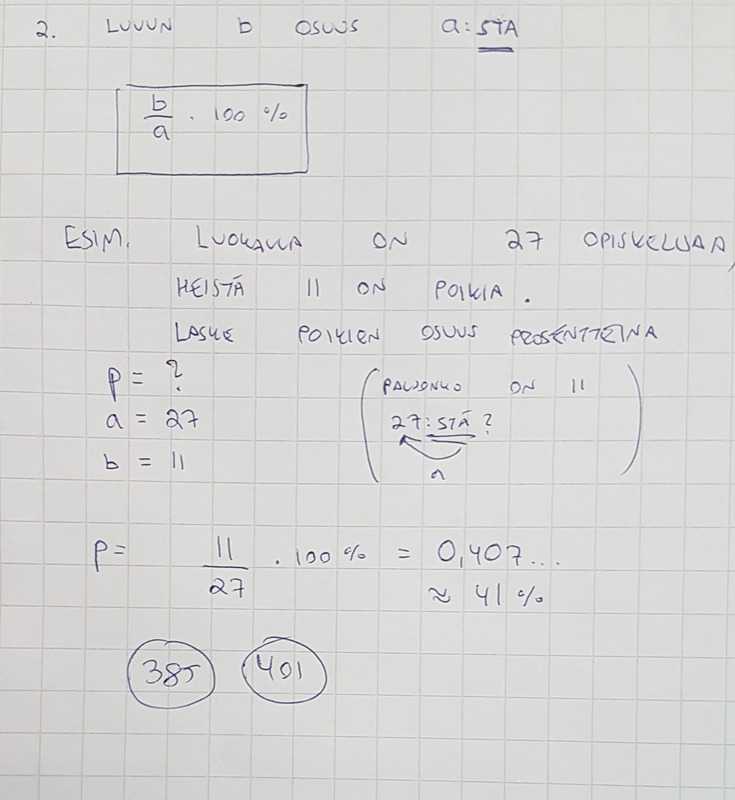 2. LUVUN b OSUUS a:STA
b/a · 100 %
ESIM. LUOKALLA ON 27 OPISKELIJAA,
HEISTÄ 11 ON POIKIA.
LASKE POIKIEN OSUUS PROSENTTEINA
p = ?
a = 27
b = 11
(PALJONKO ON 11
27:STÄ?
a)
p = 11/27 · 100 % = 0,407...
≈ 41 %
385 401